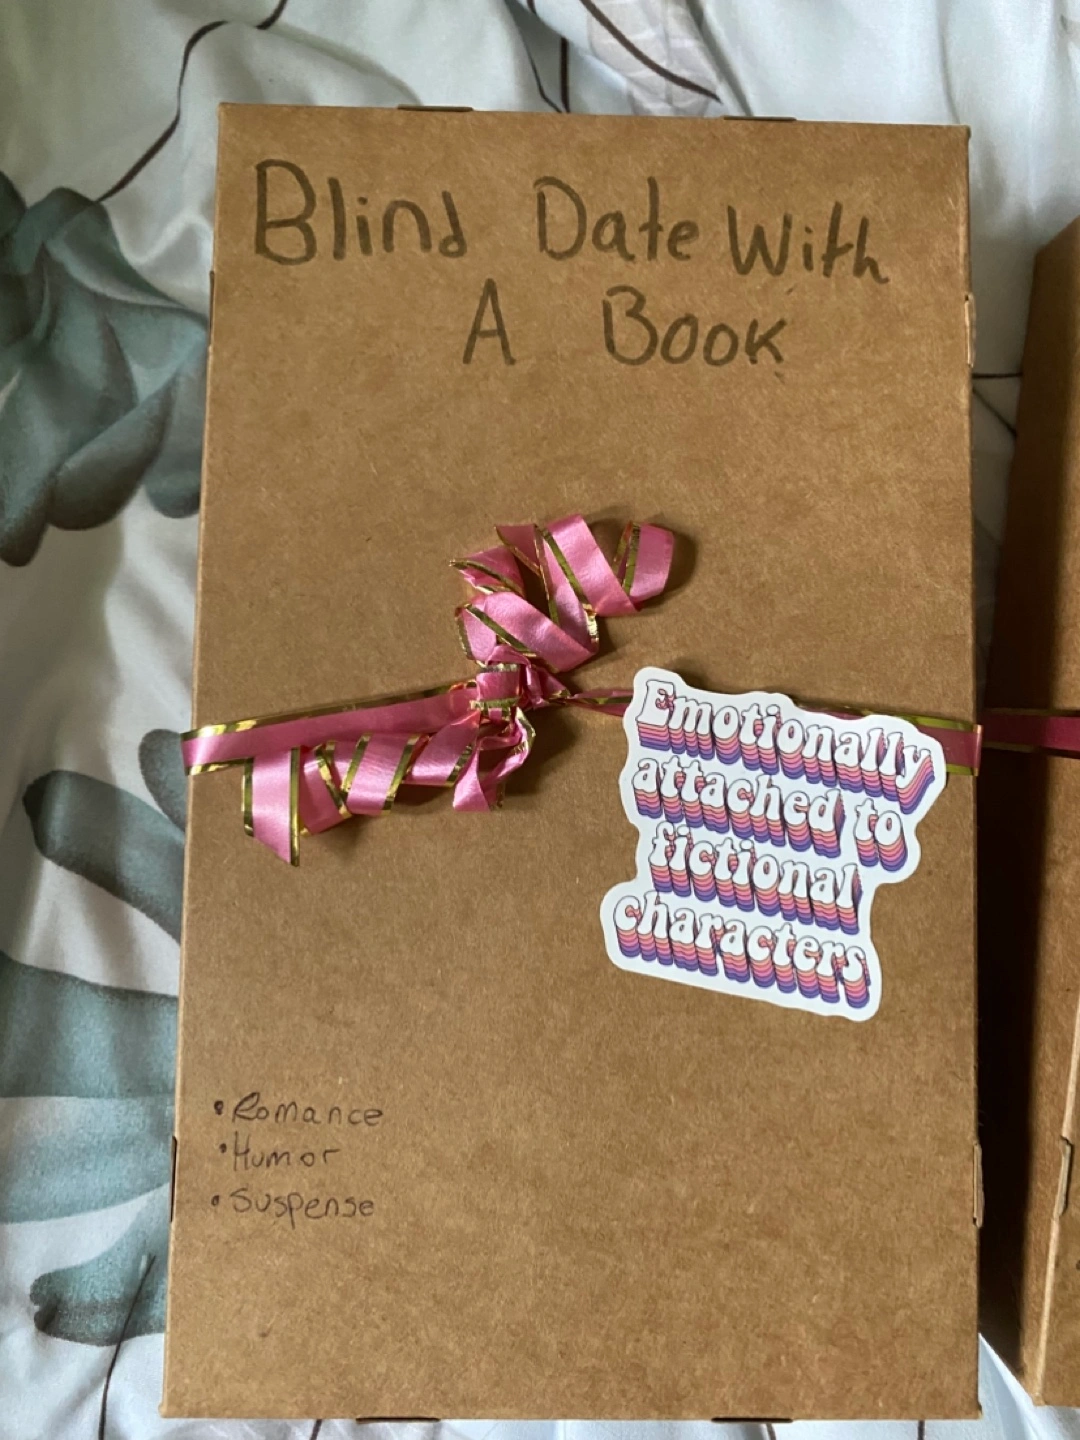 Blind Date With
A Book
Emotionally
attached to
fictional
characters
• Romance
• Humor
• Suspense